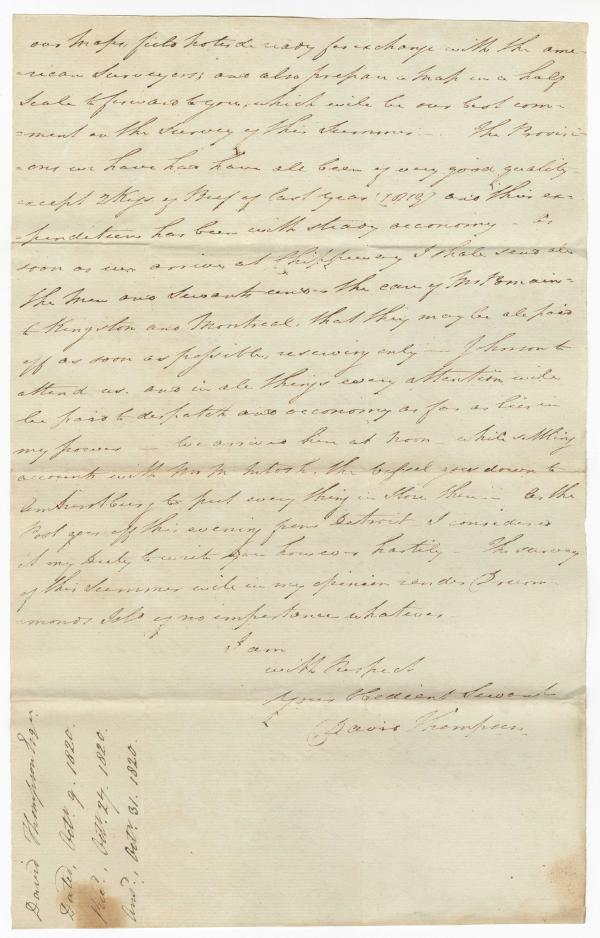 our Maps, field Notes &c ready for exchange with the ame-
-rican Surveyors; and also prepare a Map on a half
Scale to forward to you, which will be our best com-
-ment on the Survey of this Summer. — The Provisi-
-ons we have had have all been of very good quality
except 2 Kegs of Beef of last year (1819) and their ex-
-penditure has been with steady œconomy — As
soon as we arrive at Chippeway I shall send all
the Men and Servants under the care of Mr
to Kingston and Montreal, that they may be all paid
off as soon as possible, reserving only — Johnson to
attend us. and in all things every attention will
be paid to despatch and œconomy as far as lies in
my power — We arrived here at Noon — while settling
accounts with Mr McIntosh, the Vessel goes down to
Amherstburg to put every thing in Store there — As the
Post goes off this evening from Detroit I considered
it my Duty to write you however hastily — The survey
of this Summer will in my opinion render Drum-
-monds Isld of no importance whatever —
I am
with Respect
Your Obedient Servant
David Thompson.
David Thompson Esqr.
Dated, Octr. 9. 1820.
Recd., Octr. 24. 1820.
Ansd., Octr. 31. 1820.